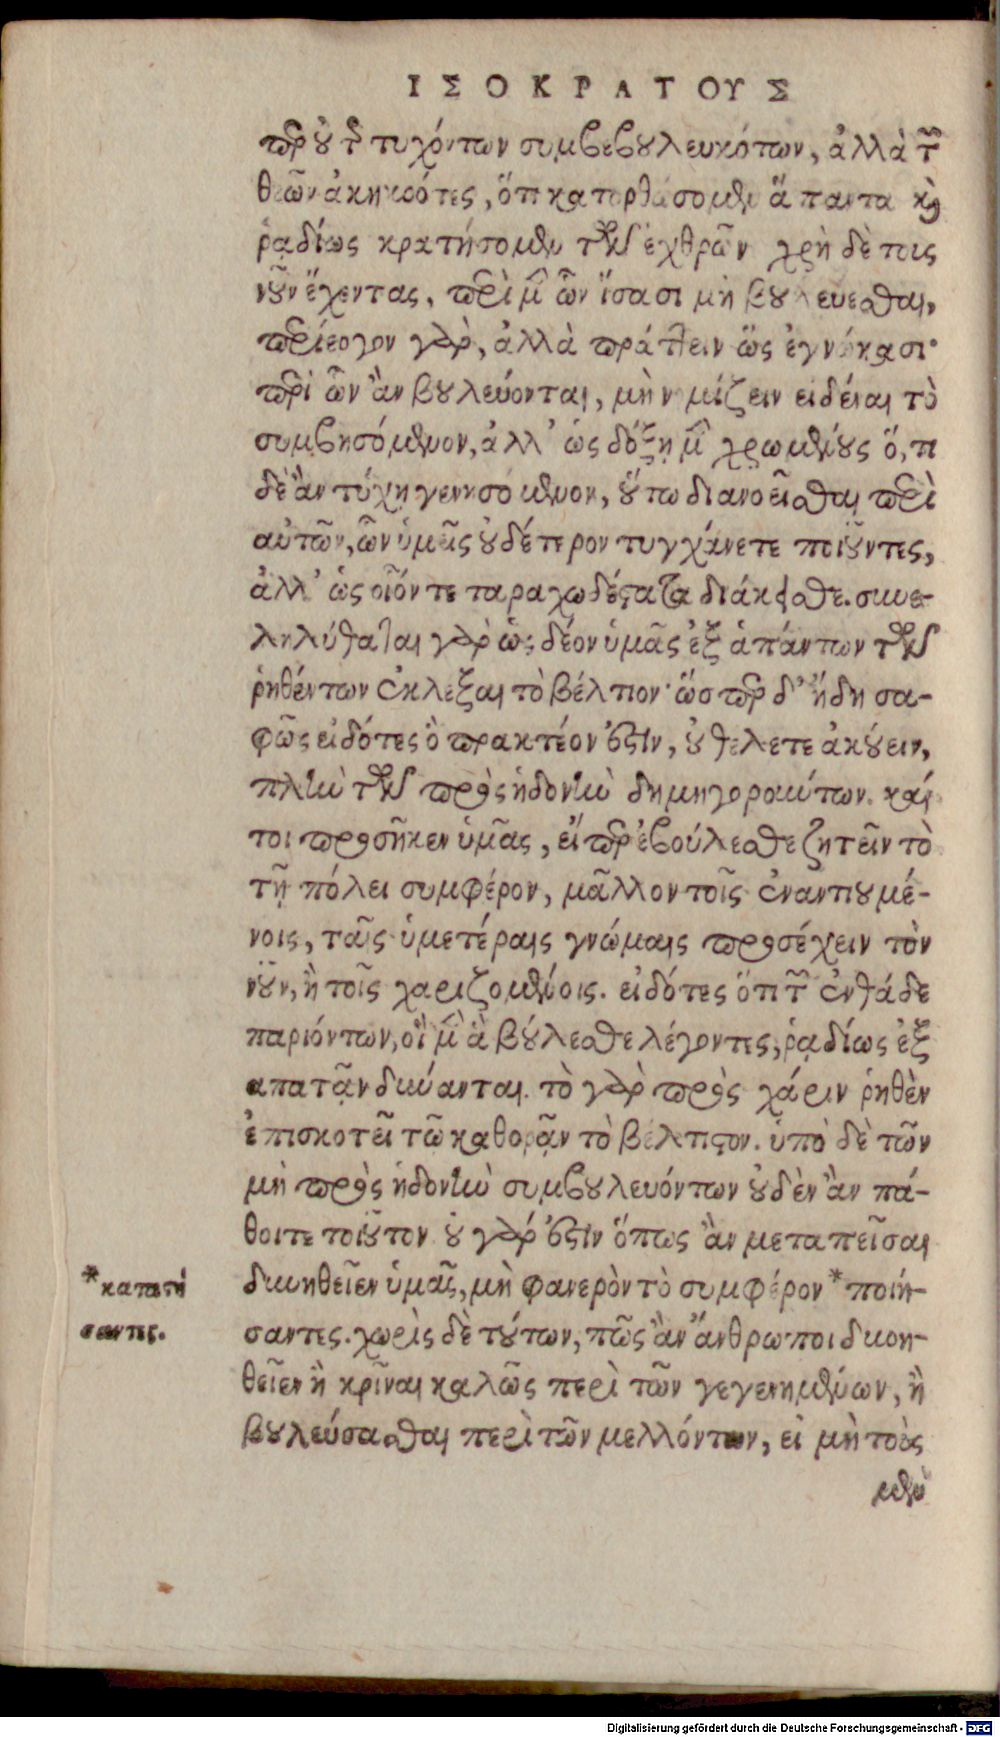 ΙΣΟΚΡΑΤΟΥΣ
περ οὐ τῶν τυχόντων συμβεβουλευκότων, ἀλλὰ τῶν
θεῶν ἀκηκοότες, ὅτι κατορθώσομεν ἅπαντα καὶ
ῥᾳδίως κρατήσομεν τῶν ἐχθρῶν χρὴ δὲ τοὺς
νοῦν ἔχοντας, περὶ μὲν ὧν ἴσασι μὴ βουλεύεσθαι,
περίεργον γὰρ, ἀλλὰ πράττειν ὡς ἐγνώκασι·
περὶ ὧν ἂν βουλεύονται, μὴ νομίζειν εἰδέναι τὸ
συμβησόμενον, ἀλλ' ὡς δόξῃ μὲν χρωμένους ὅ,τι
δὲ ἂν τύχῃ γενησόμενον, οὕτω διανοεῖσθαι περὶ
αὐτῶν, ὧν ὑμεῖς οὐδέτερον τυγχάνετε ποιοῦντες,
ἀλλ' ὡς οἷόν τε ταραχωδέστατα διάκεισθε. συνε-
ληλύθατε γὰρ ὡς δέον ὑμᾶς ἐξ ἁπάντων τῶν
ῥηθέντων ἐκλέξαι τὸ βέλτιον· ὥσπερ δ' ἤδη σα-
φῶς εἰδότες ὃ πρακτέον ἐστὶν, οὐ θέλετε ἀκούειν,
πλὴν τῶν πρὸς ἡδονὴν δημηγορούντων. καί
τοι προσῆκεν ὑμᾶς, εἴπερ ἐβούλεσθε ζητεῖν τὸ
τῇ πόλει συμφέρον, μᾶλλον τοῖς ἐναντιουμέ-
νοις, ταῖς ὑμετέραις γνώμαις προσέχειν τὸν
νοῦν, ἢ τοῖς χαριζομένοις. εἰδότες ὅτι τῶν ἐνθάδε
παριόντων, οἱ μὲν ἃ βούλεσθε λέγοντες, ῥᾳδίως ἐξ
απατᾷν δύνανται. τὸ γὰρ πρὸς χάριν ῥηθὲν
ἐπισκοτεῖ τῷ καθορᾷν τὸ βέλτιστον. ὑπὸ δὲ τῶν
μὴ πρὸς ἡδονὴν συμβουλευόντων οὐδὲν ἂν πά-
θοιτε τοιοῦτον οὐ γάρ ἐστιν ὅπως ἂν μεταπεῖσαι
δυνηθεῖεν ὑμᾶς, μὴ φανερὸν τὸ συμφέρον * ποιή-
σαντες. χωρὶς δὲ τούτων, πῶς ἂν ἄνθρωποι δυνη-
θεῖεν ἢ κρῖναι καλῶς περὶ τῶν γεγενημένων, ἢ
βουλεύσασθαι περὶ τῶν μελλόντων, εἰ μὴ τοὺς
μὲν
* καταστή
σαντες.
Digitalisierung gefördert durch die Deutsche Forschungsgemeinschaft - DFG